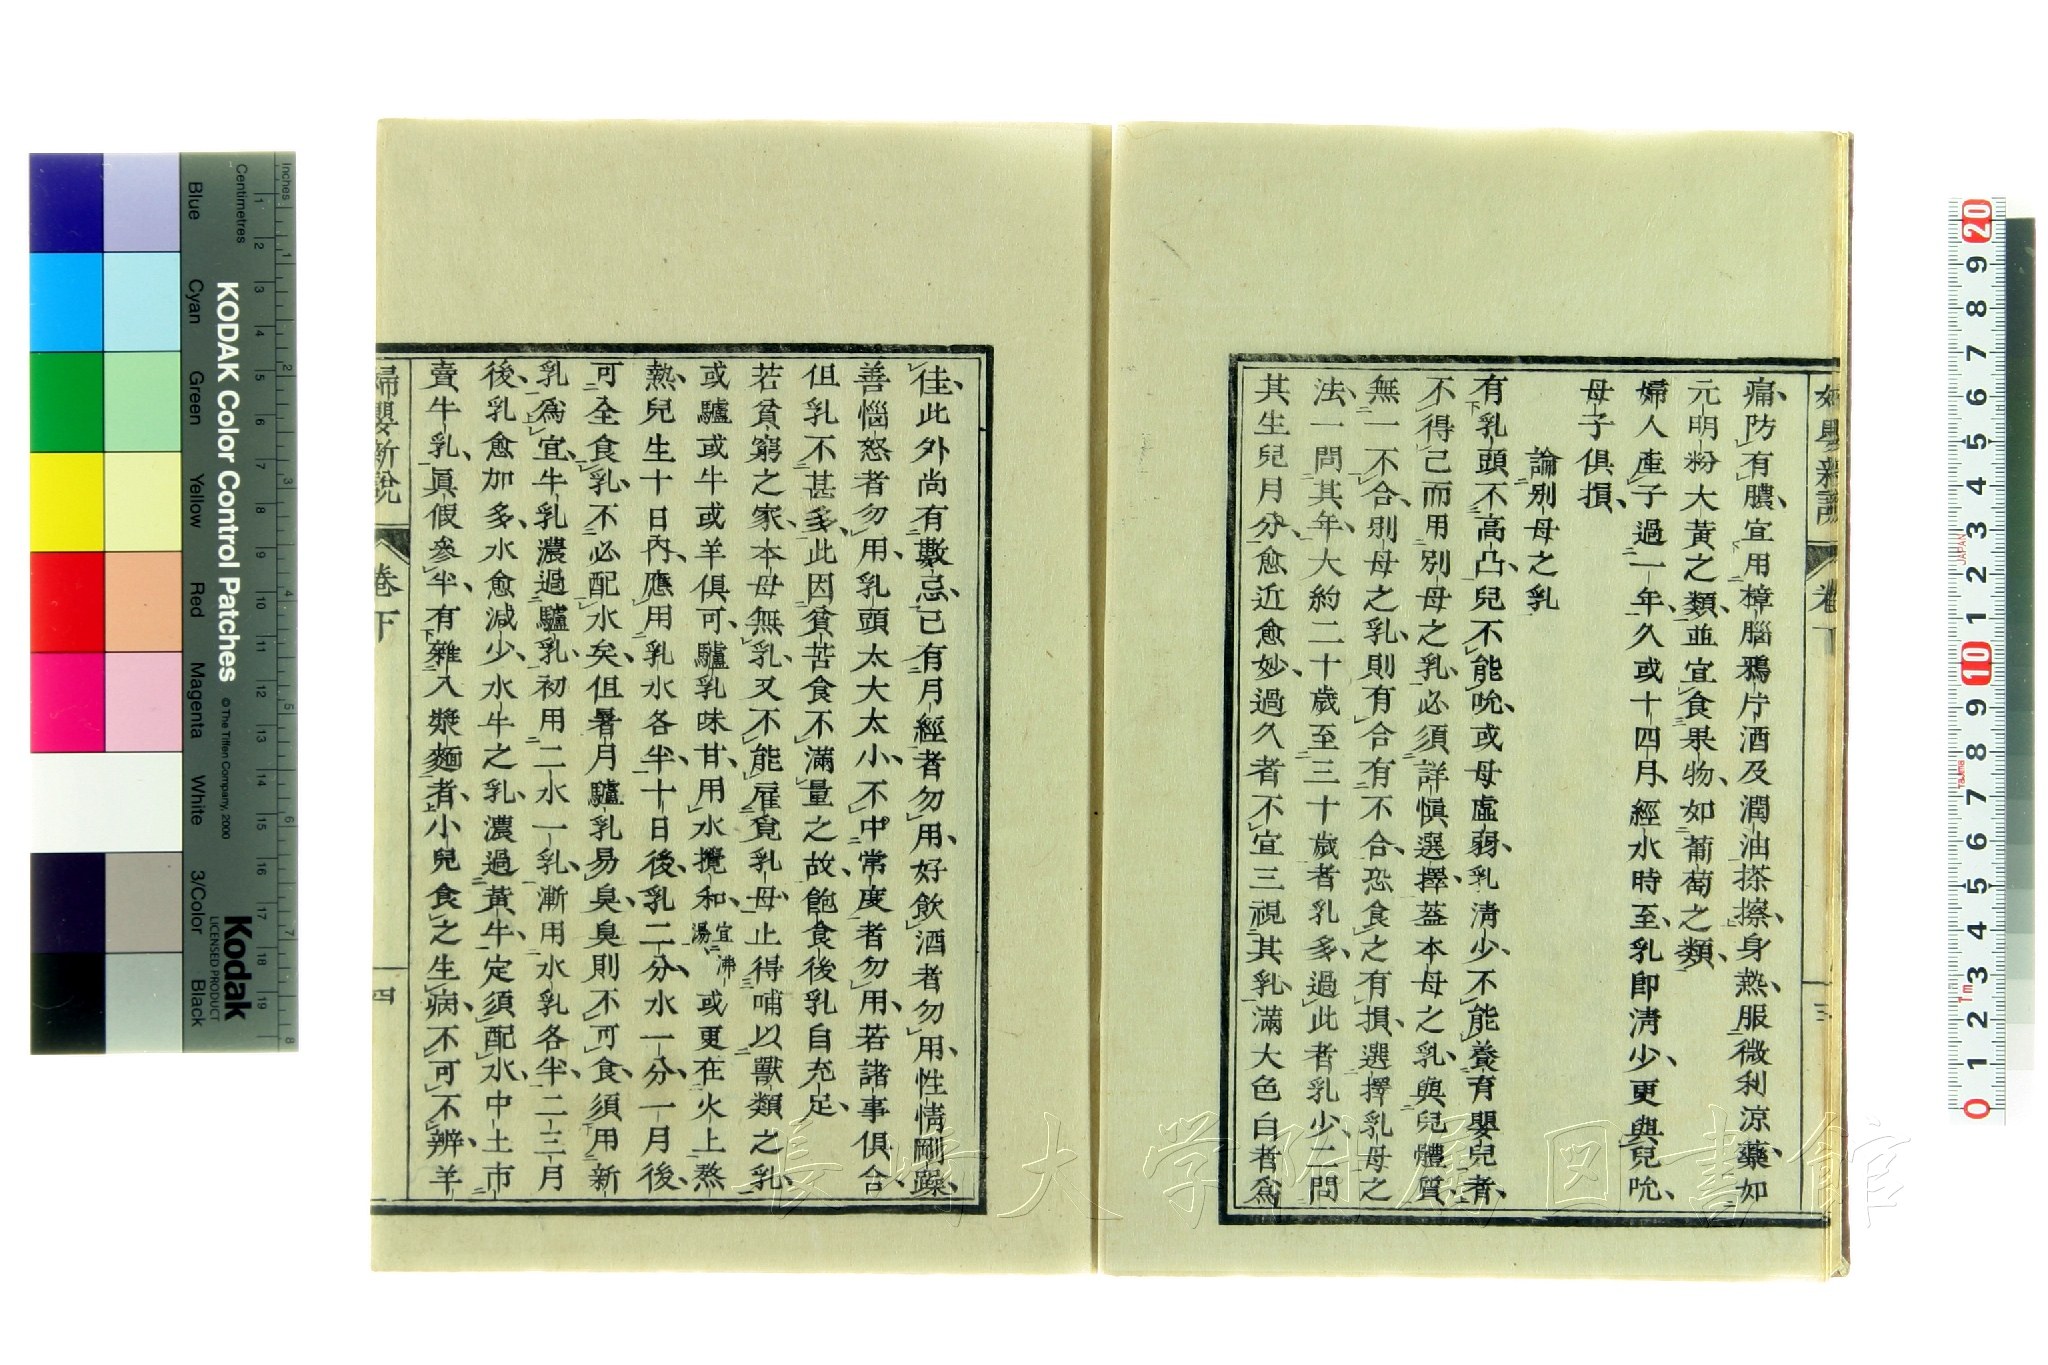 婦嬰新說
卷下
三
痛防有膿宜用樟腦鴉片酒及潤油搽擦身熱服微利涼藥如
元明粉大黃之類並宜食果物如葡萄之類
婦人產子過一年久或十四月經水時至乳即清少更與兒吮
母子俱損
論別母之乳
有乳頭不高凸兒不能吮或母虛弱乳清少不能養育嬰兒者
不得已而用別母之乳必須詳慎選擇蓋本母之乳與兒體質
無一不合別母之乳則有合有不合恐食之有損選擇乳母之
法一問其年大約二十歲至三十歲者乳多過此者乳少二問
其生兒月分愈近愈妙過久者不宜三視其乳滿大色白者為
佳此外尚有數忌已有月經者勿用好飲酒者勿用性情剛躁
善惱怒者勿用乳頭太大太小不中常度者勿用若諸事俱合
但乳不甚多此因貧苦食不滿量之故飽食後乳自充足
若貧窮之家本母無乳又不能雇覓乳母止得哺以獸類之乳
或驢或牛或羊俱可驢乳味甘用水攪和宜沸湯或更在火上熬
熱兒生十日內應用乳水各半十日後乳二分水一分一月後
可全食乳不必配水矣但暑月驢乳易臭臭則不可食須用新
乳為宜牛乳濃過驢乳初用二水一乳漸用水乳各半二三月
後乳愈加多水愈減少水牛之乳濃過黃牛定須配水中土市
賣牛乳真假參半有雜入漿麵者小兒食之生病不可不辨羊
婦嬰新說
卷下
四
長崎大学附属図書館
Inches
Centimetres
KODAK Color Control Patches
© The Tiffen Company, 2000
Kodak
LICENSED PRODUCT
Blue
Cyan
Green
Yellow
Red
Magenta
White
3/Color
Black
1 2 3 4 5 6 7 8 9 10 11 12 13 14 15 16 17 18 19
1 2 3 4 5 6 7 8
20 9 8 7 6 5 4 3 2 1 10 9 8 7 6 5 4 3 2 1 0
JAPAN
Tajima